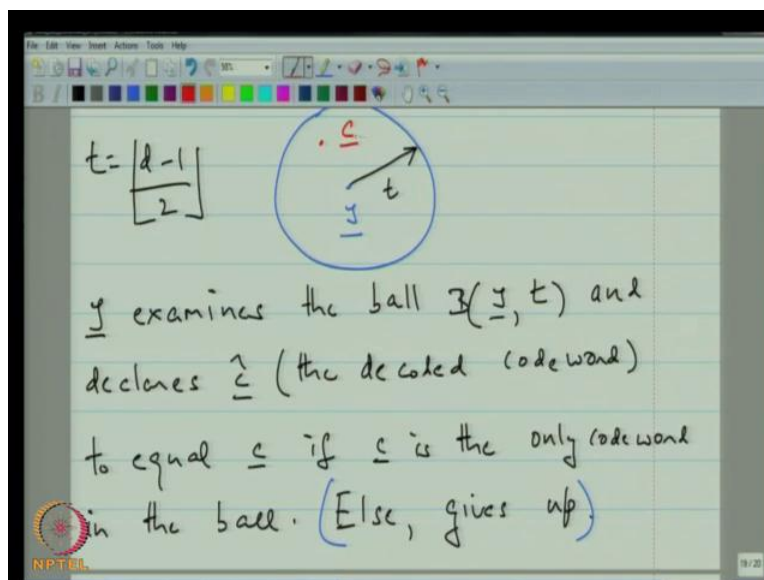 File Edit View Insert Actions Tools Help
B I
t = ⌊(d-1)/2⌋
. c
t
y
y examines the ball B(y, t) and
declares ĉ (the decoded codeword)
to equal c if c is the only codeword
in the ball. (Else, gives up)
NPTEL
19/20